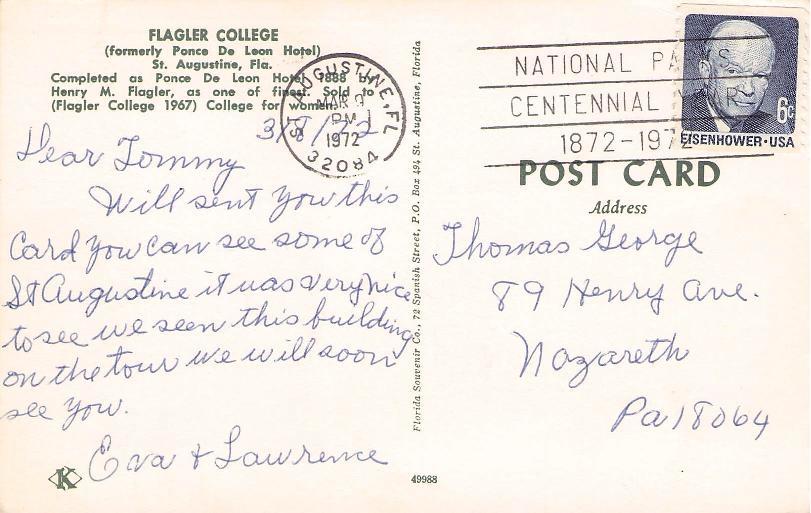 FLAGLER COLLEGE
(formerly Ponce De Leon Hotel)
St. Augustine, Fla.
Completed as Ponce De Leon Hotel 1888 by
Henry M. Flagler, as one of finest. Sold to
(Flagler College 1967) College for women.
3/8/72
Dear Tommy
Will sent you this
Card you can see some of
St Augustine it was very nice
to see we seen this building
on the tour we will soon
see you.
Eva & Lawrence
K
ST. AUGUSTINE, FL
MAR 9
PM
1972
32084
Florida Souvenir Co., 72 Spanish Street, P.O. Box 494 St. Augustine, Florida
49988
NATIONAL PARKS
CENTENNIAL YEAR
1872-1972
6c
EISENHOWER·USA
POST CARD
Address
Thomas George
89 Henry Ave.
Nazareth
Pa 18064